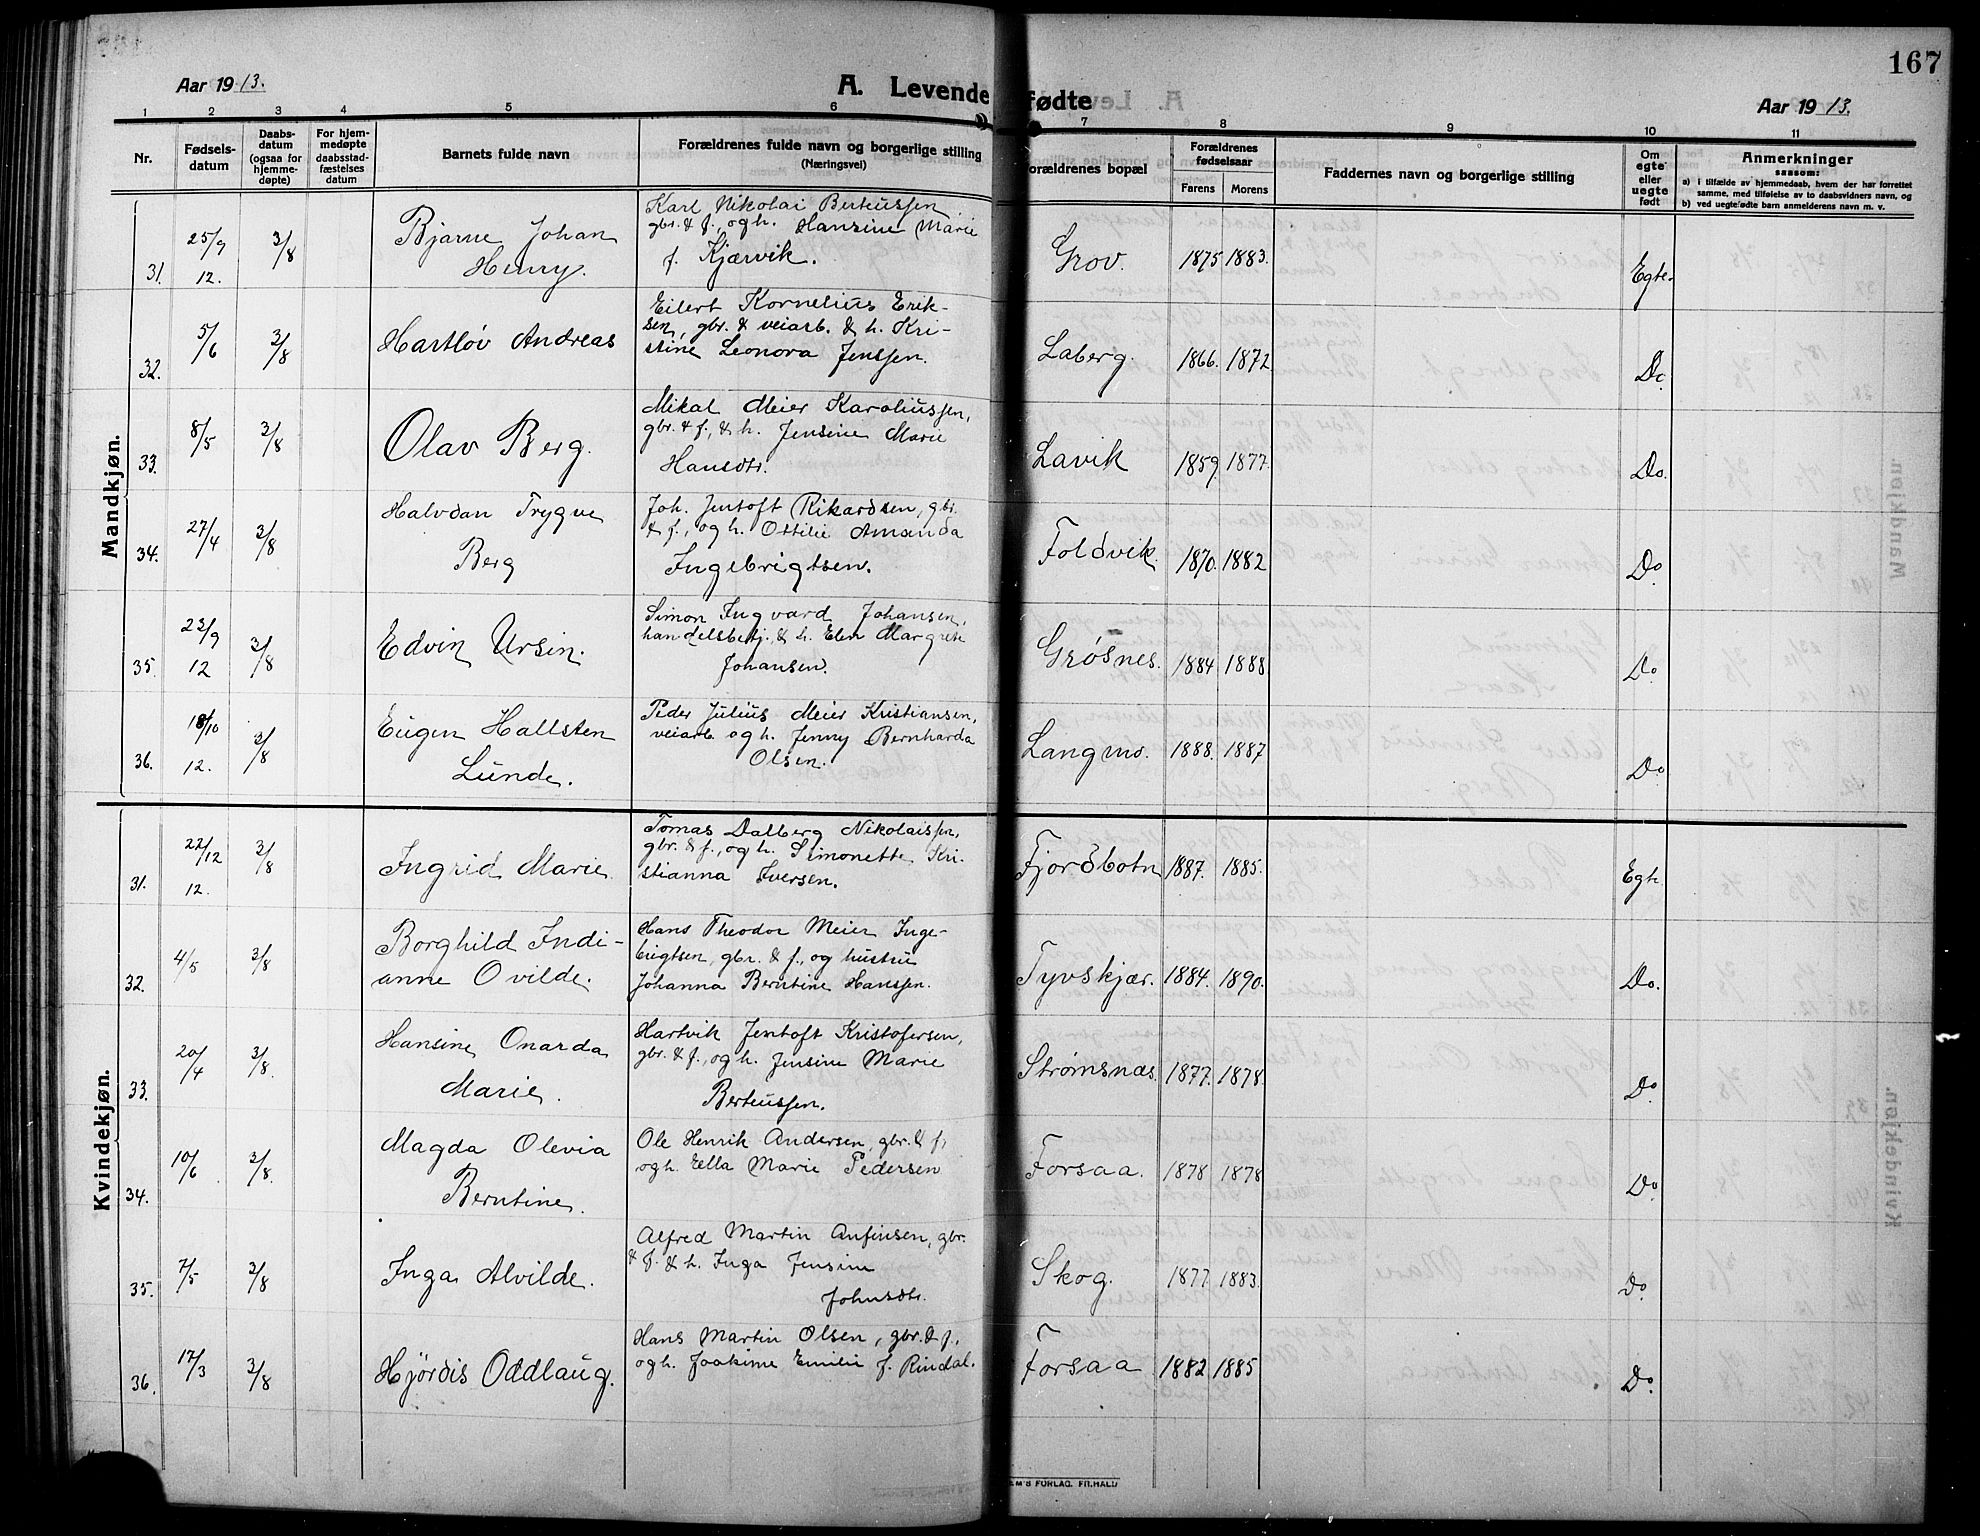 167
Aar 1913.
A. Levende fødte
Aar 1913.
1 2 3 4 5 6 7 8 9 10 11
Nr.
Fødsels-
datum
Daabs-
datum
(ogsaa for
hjemme-
døpte)
For hjem-
medøpte
daabsstad-
fæstelses
datum
Barnets fulde navn
Forældrenes fulde navn og borgerlige stilling
(Næringsvei)
Forældrenes bopæl
Forældrenes
fødselsaar
Farens Morens
Faddernes navn og borgerlige stilling
Om
egte
eller
uegte
født
Anmerkninger
saasom:
a) i tilfælde av hjemmedaab, hvem der har forrettet
samme, med tilføielse av to daabsvidners navn, og
b) ved uegtefødte barn anmelderens navn m. v.
Mandkjøn.
31. 25/9 12. 3/8
Bjarne Johan
Henry.
Karl Nikolai Berteussen
gbr. & f., og h. Hansine Marie
f. Kjærvik.
Grov. 1875 1883. Egte.
32. 5/6 3/8
Hartløv Andreas
Eilert Kornelius Erik-
sen, gbr. & veiarb. & h. Kri-
stine Leonora Jenssen.
Laberg. 1866. 1872 Do
33. 8/5 3/8
Olav Berg.
Mikal Meier Karoliussen,
gbr. & f., & h. Jensine Marie
Hansdtr.
Lavik 1859. 1877. Do.
34. 27/4 3/8
Halvdan Trygve
Berg
Joh. Jentoft Rikardsen, gbr.
& f., og h. Ottilie Amanda
Ingebrigtsen.
Foldvik. 1870. 1882 Do.
35. 23/9 12 3/8
Edvin Ursin.
Simon Ingvard Johansen,
handelsbetj., & h. Elen Margrete
Johansen.
Grøsnes. 1884 1888 Do.
36. 18/10 12. 3/8
Eugen Hallsten
Lunde.
Peder Julius Meier Kristiansen,
veiarb. og h. Jenny Bernharda
Olsen.
Langmo. 1888. 1887 Do
Kvindekjøn.
31. 22/12 12. 3/8
Ingrid Marie.
Tomas Dalberg Nikolaissen,
gbr. & f., og h. Simonette Kri-
stianna Iversen.
Fjordbotn 1887. 1885. Egte
32. 4/5 3/8
Borghild Indi-
anne Ovilde.
Hans Theodor Meier Inge-
brigtsen, gbr. & f., og hustru
Johanna Berntine Hanssen.
Tyvskjær. 1884. 1890. Do.
33. 20/4 3/8.
Hansine Onarda
Marie.
Hartvik Jentoft Kristofersen,
gbr. & f., og h. Jensine Marie
Berteussen.
Strømsnæs. 1877. 1878. Do.
34. 10/6 3/8.
Magda Olevia
Berntine.
Ole Henrik Andersen, gbr. & f,
og h. Ella Marie Pedersen
Forsaa. 1878 1878 Do.
35. 7/5 3/8
Inga Alvilde.
Alfred Martin Anfinsen, gbr.
& f. & h. Inga Jensine
Johnsdtr.
Skog. 1877. 1883. Do.
36. 17/3 3/8
Hjørdis Oddlaug.
Hans Martin Olsen, gbr. & f.,
og h. Joakime Emilie f. Rindal.
Forsaa 1882 1885 Do.
M'S FORLAG. FR.HALD